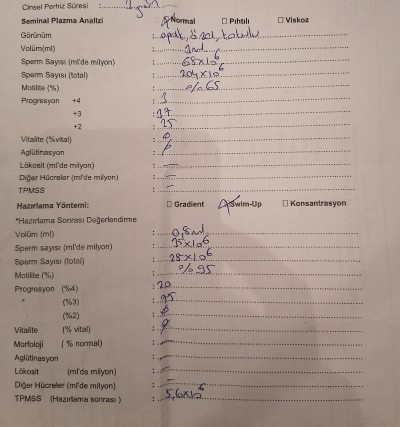 Cinsel Perhiz Süresi :
Seminal Plazma Analizi ☒ Normal ☐ Pıhtılı ☐ Viskoz
Görünüm : opak, özel, kokulu
Volüm(ml) : 3ml
Sperm Sayısı (ml'de milyon) : 68x10⁶
Sperm Sayısı (total) : 204x10⁶
Motilite (%) : % 65
Progresyon +4 :
+3 : 37
+2 : 25
Vitalite (%vital) : ø
Aglütinasyon : ø
Lökosit (ml'de milyon) : —
Diğer Hücreler (ml'de milyon) : —
TPMSS : —
Hazırlama Yöntemi: ☐ Gradient ☒ Swim-Up ☐ Konsantrasyon
*Hazırlama Sonrası Değerlendirme
Volüm (ml) : 0,8ml
Sperm sayısı (ml'de milyon) : 35x10⁶
Sperm Sayısı (total) : 28x10⁶
Motilite (%) : % 95
Progresyon (%4) : 20
" (%3) : 75
(%2) : ø
Vitalite (% vital) : ø
Morfoloji ( % normal) : —
Aglütinasyon : —
Lökosit (ml'de milyon) : —
Diğer Hücreler (ml'de milyon) : —
TPMSS (Hazırlama sonrası ) : 5,6x10⁶